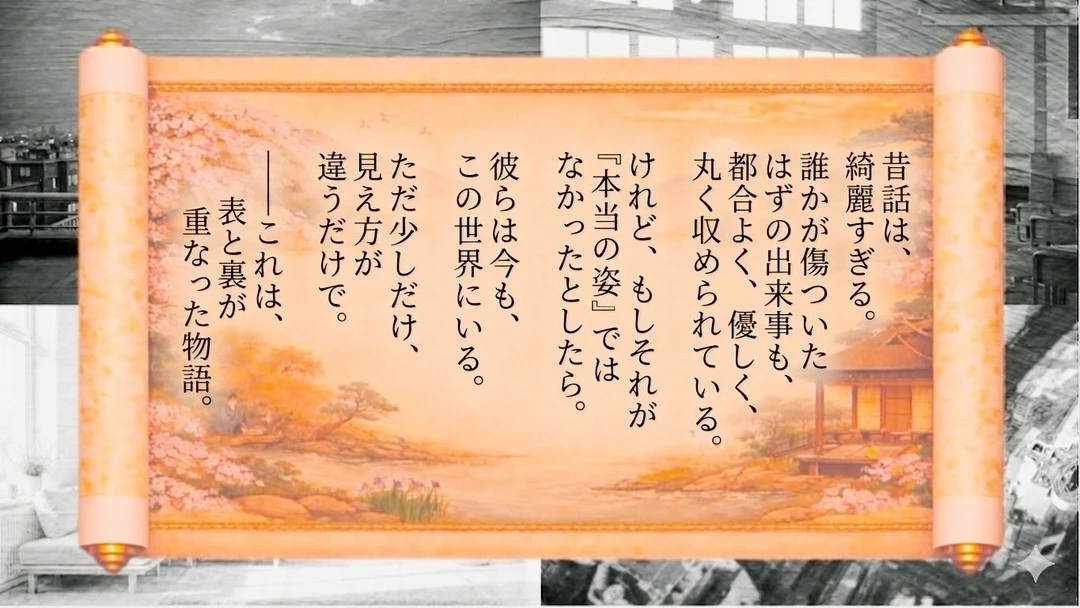 昔話は、
綺麗すぎる。
誰かが傷ついた
はずの出来事も、
都合よく、優しく、
丸く収められている。
けれど、もしそれが
『本当の姿』では
なかったとしたら。
彼らは今も、
この世界にいる。
ただ少しだけ、
見え方が
違うだけで。
――これは、
表と裏が
重なった物語。